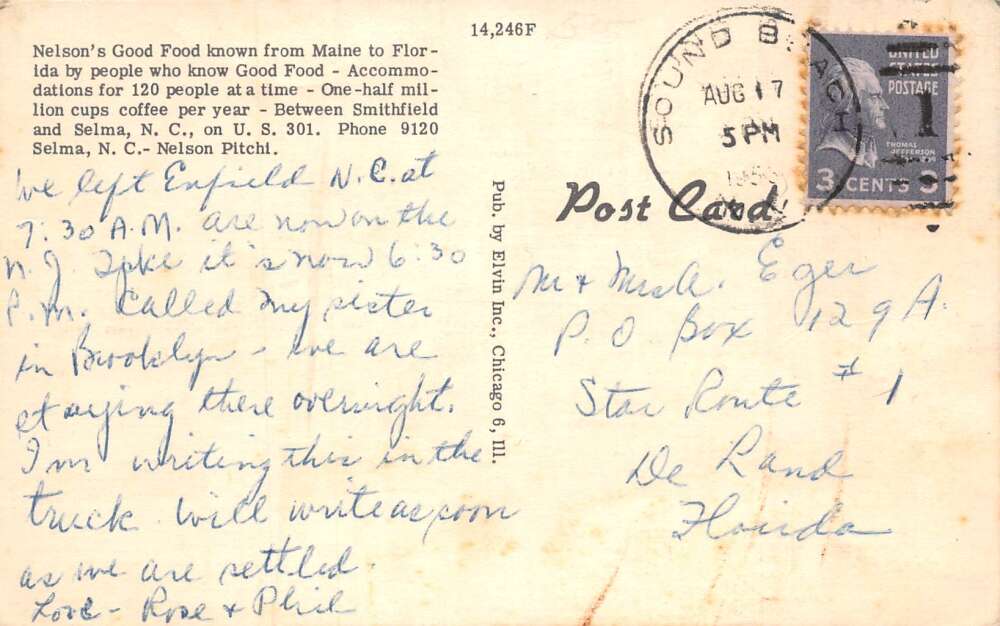 14,246F
Nelson's Good Food known from Maine to Flor-
ida by people who know Good Food - Accommo-
dations for 120 people at a time - One-half mil-
lion cups coffee per year - Between Smithfield
and Selma, N. C., on U. S. 301. Phone 9120
Selma, N. C.- Nelson Pitchi.
We left Enfield N.C. at
7:30 A.M. are now on the
N.J. Tpke it's now 6:30
P.M. Called my sister
in Brooklyn - we are
staying there overnight.
I'm writing this in the
truck. Will write as soon
as we are settled.
Love - Rose & Phil
Pub. by Elvin Inc., Chicago 6, Ill.
Post Card
SOUND BEACH
AUG 17
5 PM
UNITED
STATES
POSTAGE
THOMAS
JEFFERSON
3 CENTS 3
Mr & Mrs A. Eger
P.O Box 129A
Star Route #1
De Land
Florida